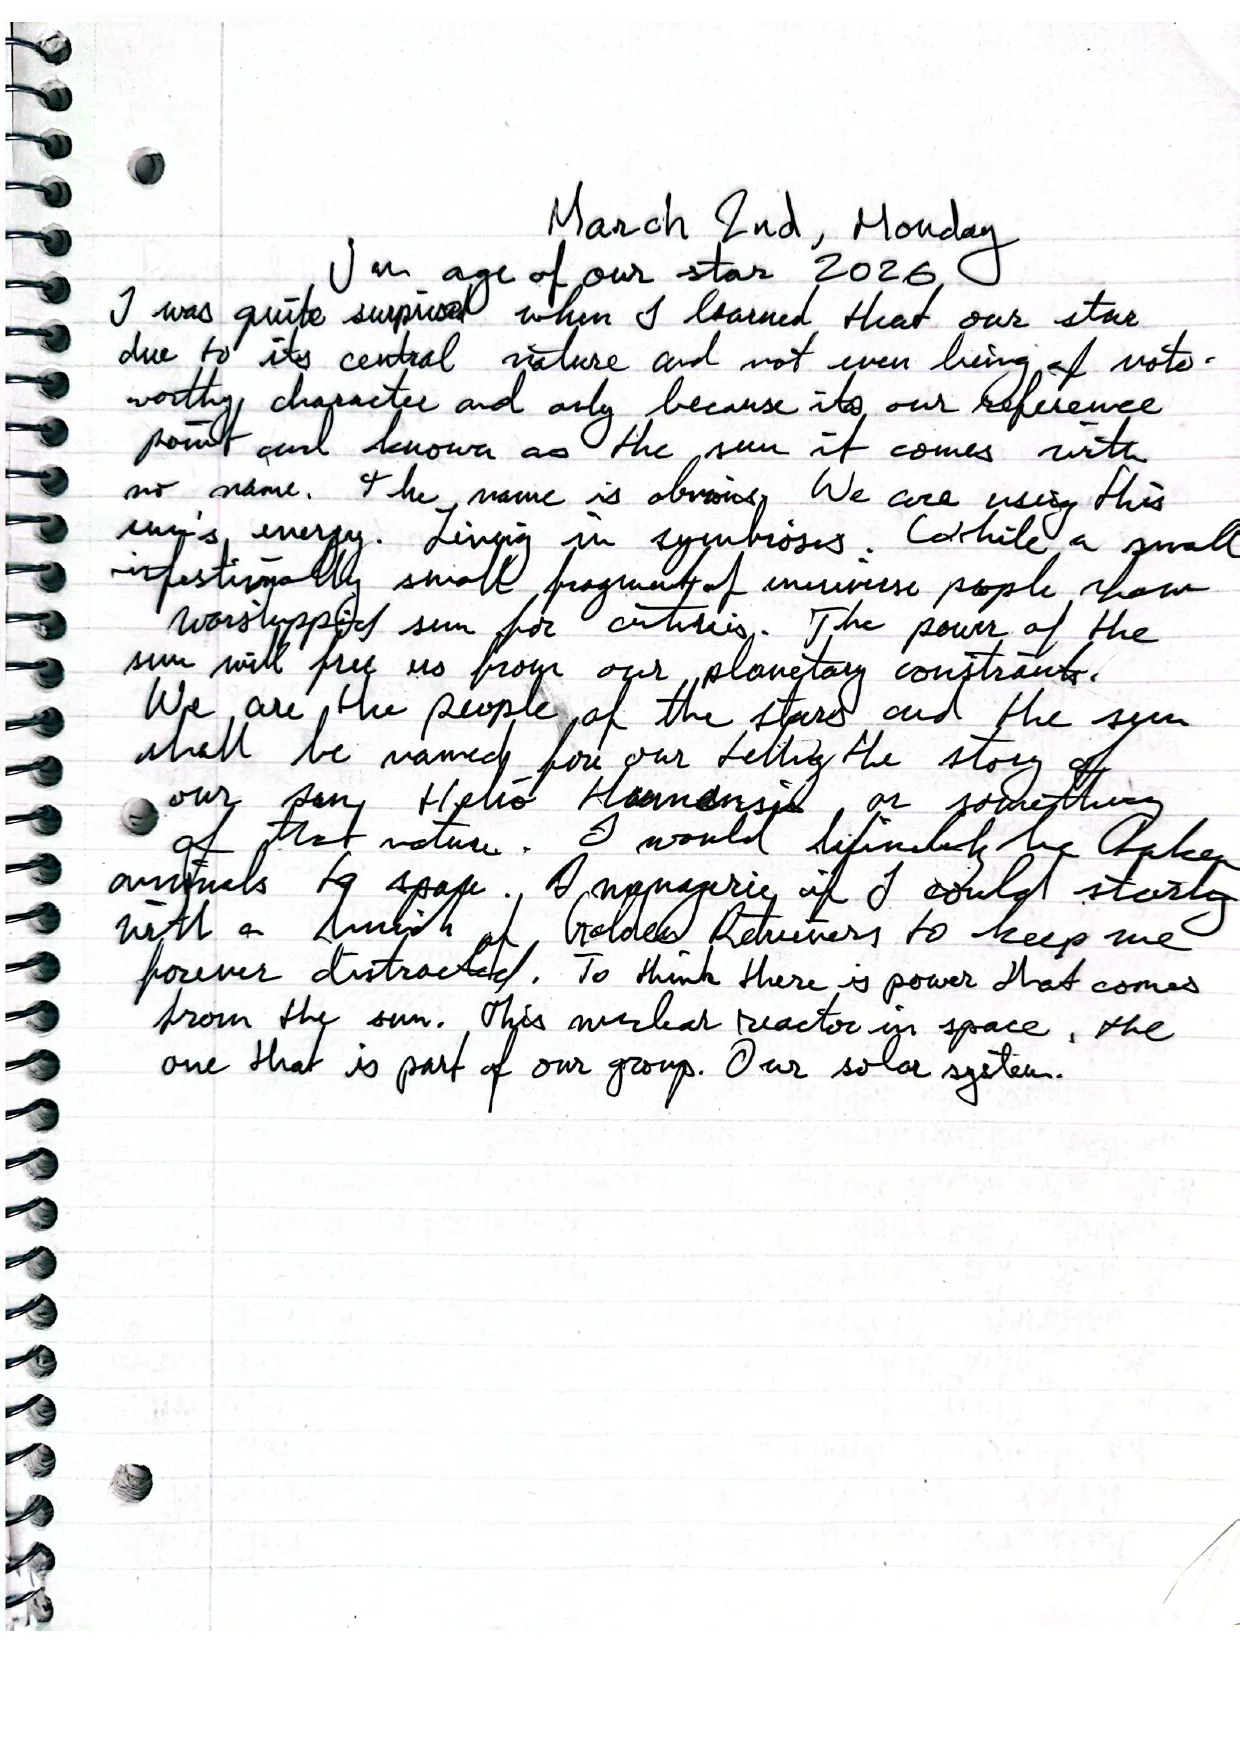 March 2nd, Monday
In age of our star 2026
I was quite surprised when I learned that our star
due to its central nature and not even being of note-
worthy character and only because its our reference
point and known as the sun it comes with
no name. The name is obvious. We are using this
sun's energy. Living in symbioses. While a small
small fragment of universe people have
worshipped sun for centuries. The power of the
sun will free us from our planetary constraints.
We are the people of the stars and the sun
shall be named for our telling the story of
our sun, Helio or something
of that nature. I would definitely be taking
animals to space. A menagerie if I could starting
with a bunch of Golden Retrievers to keep me
forever distracted. To think there is power that comes
from the sun. This nuclear reactor in space, the
one that is part of our group. Our solar system.